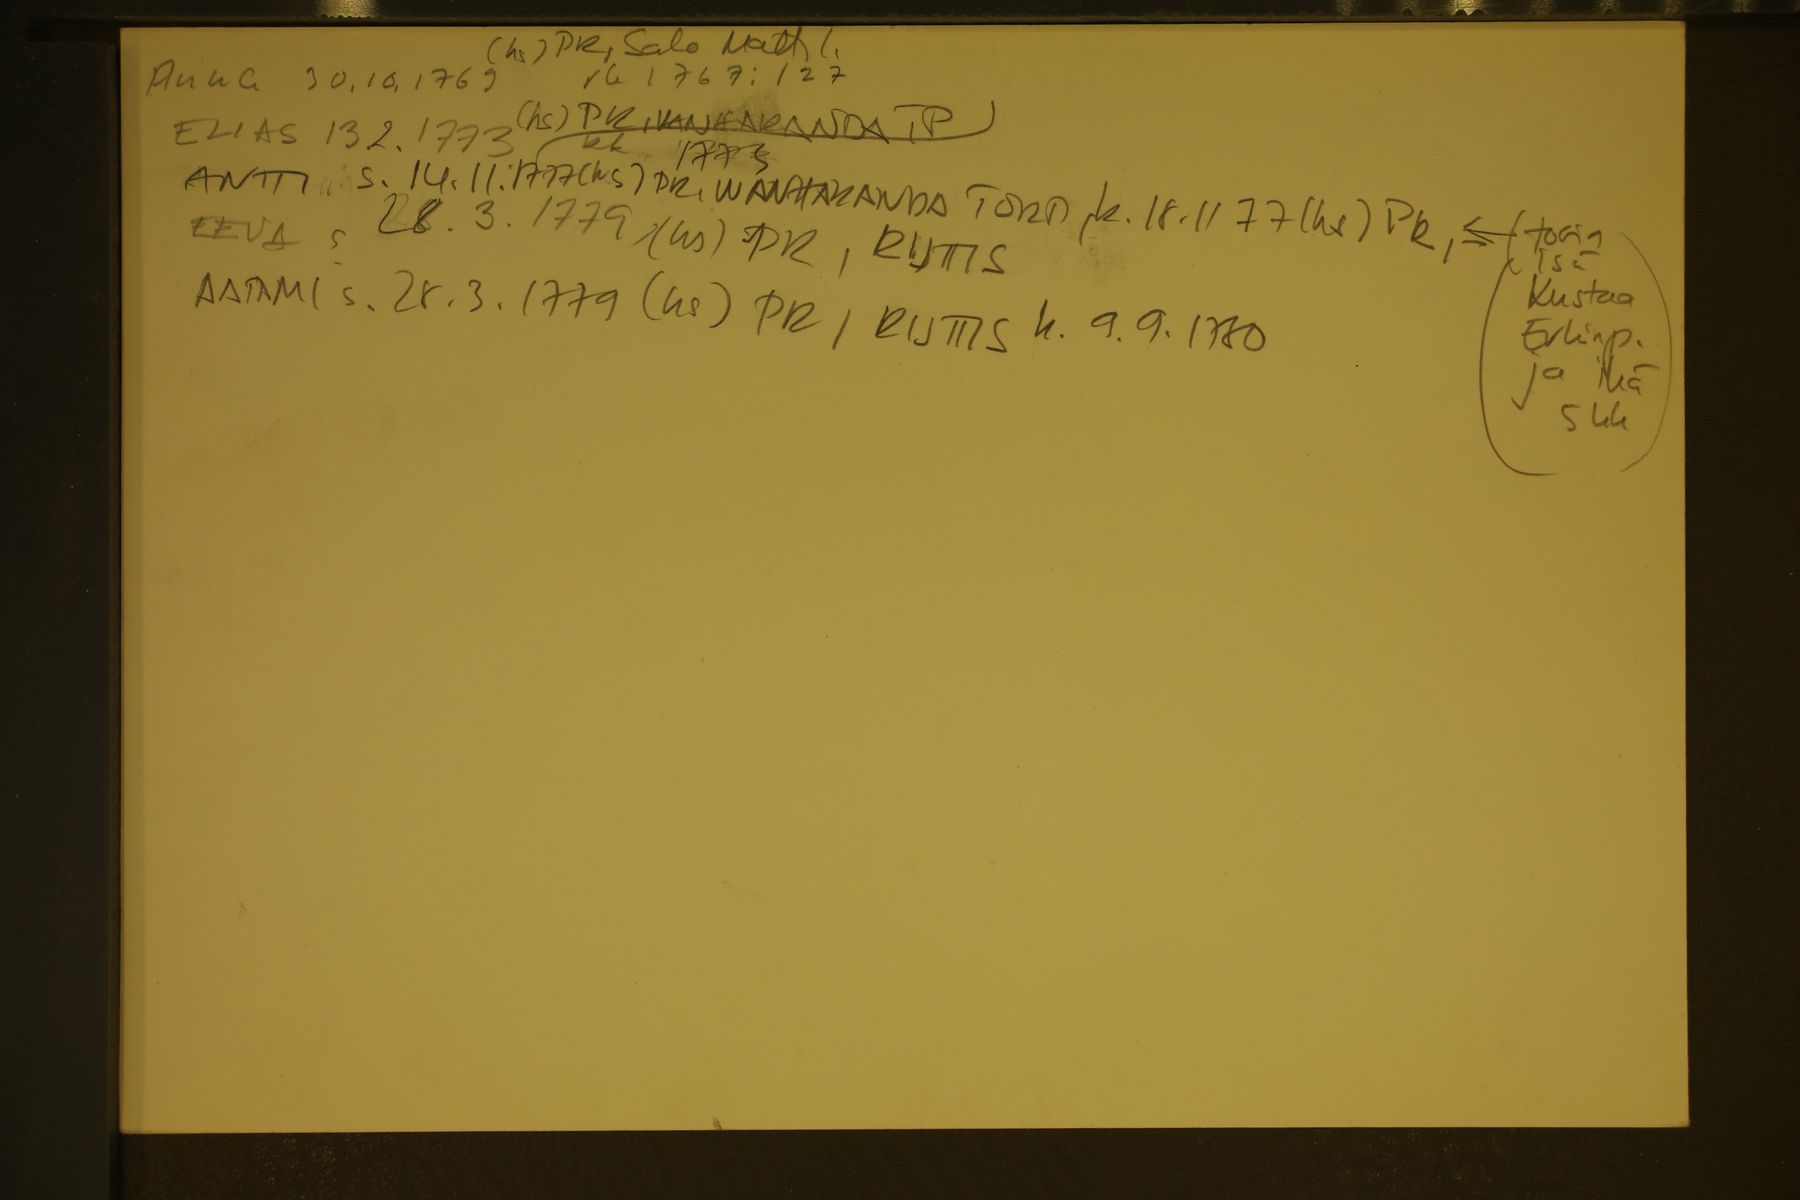 (hs) PR, Salo Math l.
Anna 30.10.1769 rk 1767:127
ELIAS 13 2. 1773 (hs) PR, VANHARANDA TP
kk 1773
ANTTI s. 14.11.1777 (hs) PR, WANHARANDA TORP, k. 18.11 77 (hs) PR,
EEVA s 28. 3. 1779 (hs) PR, RUTTIS
AATAMI s. 28.3. 1779 (hs) PR, RUTTIS k. 9.9. 1780
(tosin
isä
Kustaa
Erkinp.
ja ikä
5 kk)